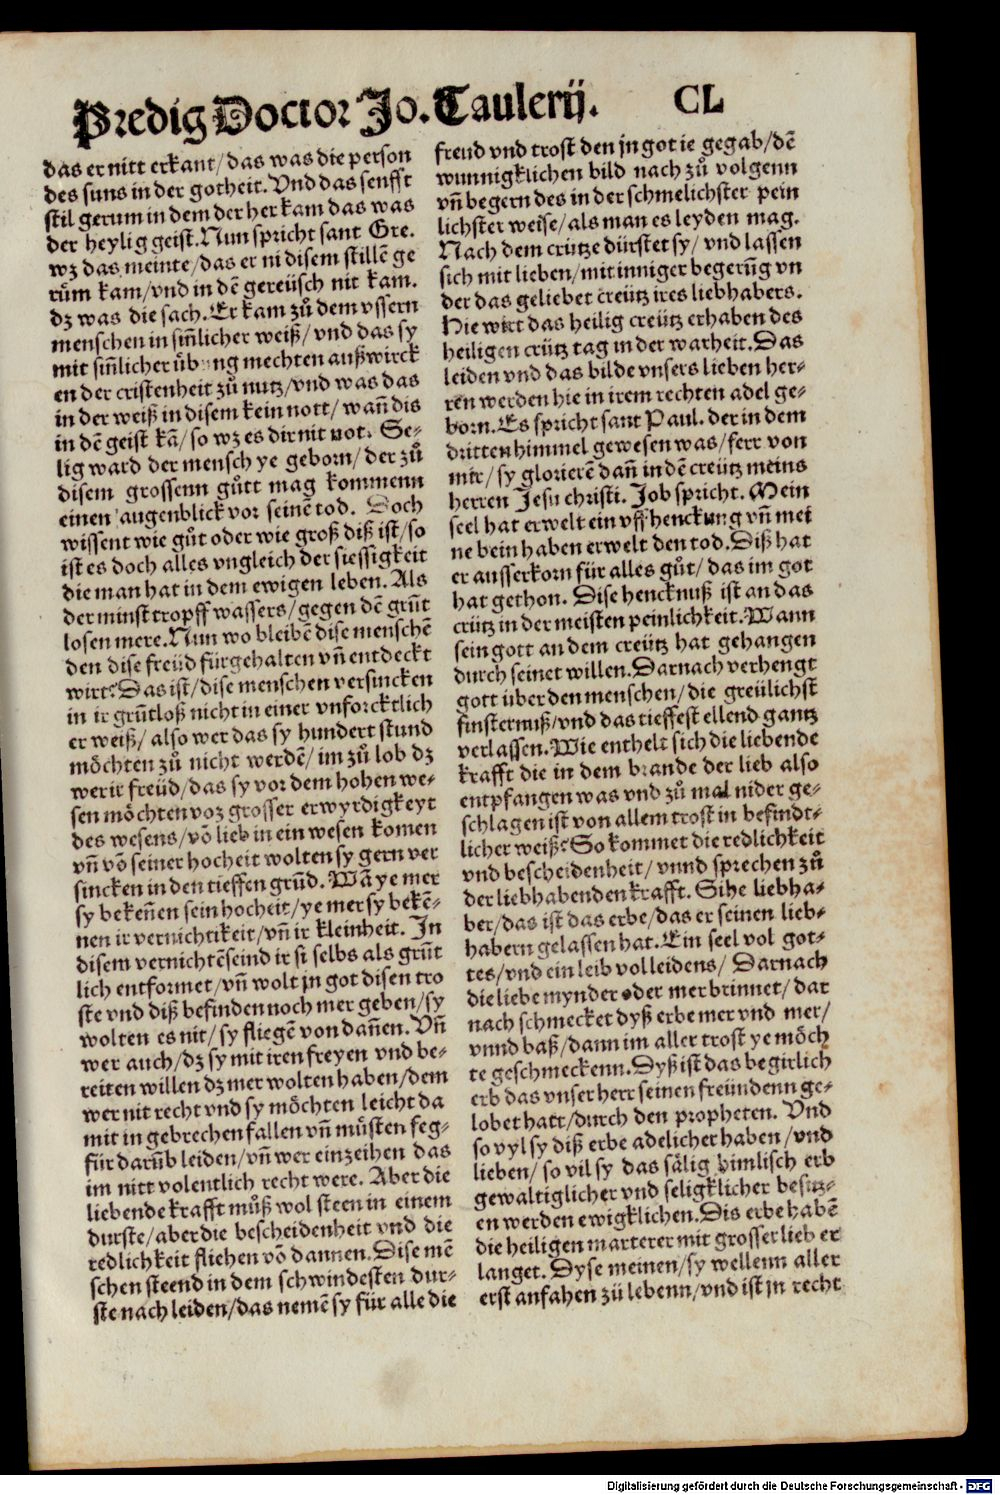 Predig Doctor Jo. Taulerij. CL
das er nitt erkant/das was die person
des suns in der gotheit. Vnd das senfft
stil gerum in dem der her kam das was
der heylig geist. Nun spricht sant Gre.
wz das meinte/das er ni disem stillē ge
rům kam/vnd in dē gereüsch nit kam.
dz was die sach. Er kam zů dem vssern
menschen in siñlicher weiß/ vnd das sy
mit siñlicher übung mechten außwirck
en der cristenheit zů nutz/vnd was das
in der weiß in disem kein nott/ wañ dis
in dē geist kā/ so wz es dir nit not. Se-
lig ward der mensch ye geborn/ der zů
disem grossenn gůtt mag kommenn
einen augenblick vor seinē tod. Doch
wissent wie gůt oder wie groß diß ist/so
ist es doch alles vngleich der siessigkeit
die man hat in dem ewigen leben. Als
der minst tropff wassers/gegen dē grūt
losen mere. Nun wo bleibē dise menschē
den dise freüd fürgehalten vñ entdeckt
wirt? Das ist/dise menschen versincken
in ir grūtloß nicht in einer vnforcktlich
er weiß/ also wer das sy hundert stund
möchten zů nicht werdē/ im zů lob dz
wer ir freüd/das sy vor dem hohen we-
sen möchten voz grosser erwyrdigkeyt
des wesens/vō lieb in ein wesen komen
vñ vō seiner hocheit wolten sy gern ver
sincken in den tieffen grūd. Wā ye mer
sy bekeñen sein hocheit/ye mer sy bekē-
nen ir vernichtikeit/vñ ir kleinheit. In
disem vernichtē seind ir si selbs als grūt
lich entformet/vñ wolt jn got disen tro
ste vnd diß befinden noch mer geben/sy
wolten es nit/sy fliegē von dañen. Vñ
wer auch/dz sy mit iren freyen vnd be-
reiten willen dz mer wolten haben/dem
wer nit recht vnd sy möchten leicht da
mit in gebrechen fallen vñ můsten feg-
für darūb leiden/vñ wer einzeihen das
im nitt volentlich recht were. Aber die
liebende krafft můß wol steen in einem
durste/aber die bescheidenheit vnd die
redlichkeit fliehen vō dannen. Dise mē
schen steend in dem schwindesten dur-
ste nach leiden/das nemē sy für alle die
freud vnd trost den jn got ie gegab/dē
wunnigklichen bild nach zů volgenn
vñ begern des in der schmelichster pein
lichster weise/als man es leyden mag.
Nach dem crütze dürstet sy/ vnd lassen
sich mit lieben/mit inniger begerūg vn
der das geliebet creütz ires liebhabers.
Hie wirt das heilig creütz erhaben des
heiligen crütz tag in der warheit. Das
leiden vnd das bilde vnsers lieben her-
ren werden hie in irem rechten adel ge-
born. Es spricht sant Paul. der in dem
dritten himmel gewesen was/ ferr von
mir/ sy glorierē dañ in dē creütz meins
herren Jesu christi. Job spricht. Mein
seel hat erwelt ein vff henckung vñ mei
ne bein haben erwelt den tod. Diß hat
er ausserkorn für alles gůt/ das im got
hat gethon. Dise hencknuß ist an das
crütz in der meisten peinlichkeit. Wann
sein gott an dem creütz hat gehangen
durch seinet willen. Darnach verhengt
gott über den menschen/ die greülichst
finsternuß/vnd das tieffest ellend gantz
verlassen. Wie enthelt sich die liebende
krafft die in dem brande der lieb also
entpfangen was vnd zů mal nider ge-
schlagen ist von allem trost in befindt-
licher weiß? So kommet die redlichkeit
vnd bescheidenheit/ vnnd sprechen zů
der liebhabenden krafft. Sihe liebha-
ber/das ist das erbe/das er seinen lieb-
habern gelassen hat. Ein seel vol got-
tes/vnd ein leib vol leidens/ Darnach
die liebe mynder oder mer brinnet/ dar
nach schmecket dyß erbe mer vnd mer/
vnnd baß/dann im aller trost ye möch
te geschmeckenn. Dyß ist das begirlich
erb das vnser herr seinen freündenn ge-
lobet hatt/durch den propheten. Vnd
so vyl sy diß erbe adelicher haben/vnd
lieben/ so vil sy das sälig himlisch erb
gewaltiglicher vnd seligklicher besitz-
en werden ewigklichen. Dis erbe habē
die heiligen marterer mit grosser lieb er
langet. Dyse meinen/sy wellenn aller
erst anfahen zü lebenn/vnd ist jn recht
Digitalisierung gefördert durch die Deutsche Forschungsgemeinschaft - DFG